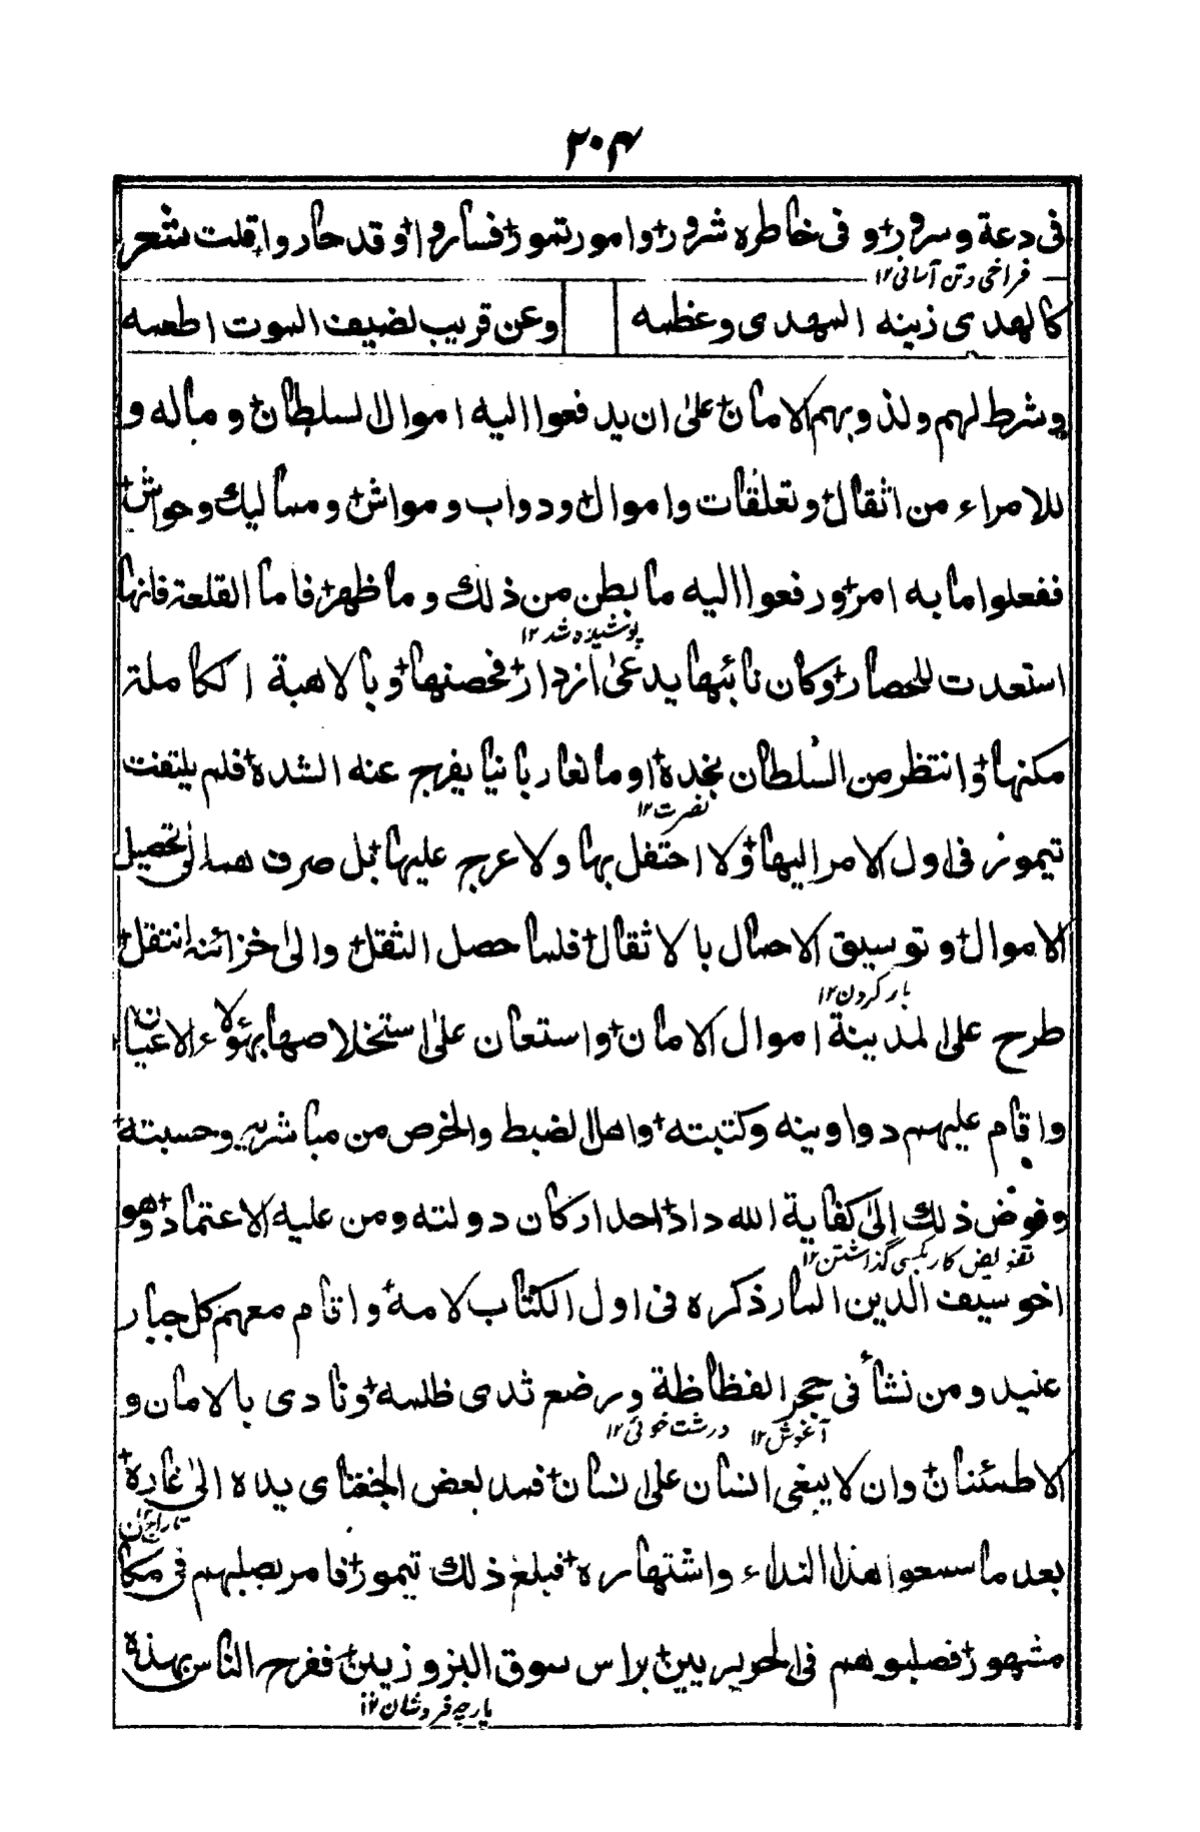 ۲۰۴
فی دعة وسرور+و فی خاطره شرور+وامور تمور+فساروا+وقد حار واقلت شعر
فراخی وتن آسانی ۱۲
کالهدی زینه المهدی وعظمه وعن قریب لضیف الموت اطعمه
وشرط لهم ولذویهم الامان+علی ان یدفعوا الیه اموال السلطان+وماله و
للامراء من اثقال+وتعلقات واموال+ودواب ومواش+وممالیك وحواش+
ففعلوا ما به امر+ورفعوا الیه ما بطن من ذلك وما ظهر+فاما القلعة فانها
پوشیده شد ۱۲
استعدت للحصار+وکان نائبها یدعی ازدار+فحصنها+وبالاهبة الکاملة
مکنها+وانتظر من السلطان نجده+اومانعا ربانیا یفرج عنه الشده+فلم یلتفت
نصرت ۱۲
تیمور فی اول الامر الیها+ولا احتفل بها ولا عرج علیها+بل صرف همه الی تحصیل
الاموال+وتوسیق الاحمال بالاثقال+فلما حصل الثقل+والی خزائنه انتقل+
بار کردن ۱۲
طرح علی المدینة اموال الامان+واستعان علی استخلاصها بهؤلاء الاعیان
واقام علیهم دواوینه وکتبته+واهل الضبط والخرص من مباشریه وحسبته+
وفوض ذلك الی کفایة الله داد+احد ارکان دولته ومن علیه الاعتماد+وهو
تفویض کار بکسی گذاشتن ۱۲
اخو سیف الدین المار ذکره فی اول الکتاب لامه+واقام معهم کل جبار
عنید ومن نشأ فی حجر الفظاظة ورضع ثدی ظلمه+ونادی بالامان و
آغوش ۱۲ درشت خوئی ۱۲
الاطمئنان+وان لا یبغی انسان علی انسان+فمد بعض الجغتای یده الی غارة+
بعد ما سمعوا هذا النداء واشتهاره+فبلغ ذلك تیمور+فامر بصلبهم فی مکان
مشهور+فصلبوهم فی الحریریین+براس سوق البزوریین+ففرح الناس بهذه
پارچه فروشان ۱۲